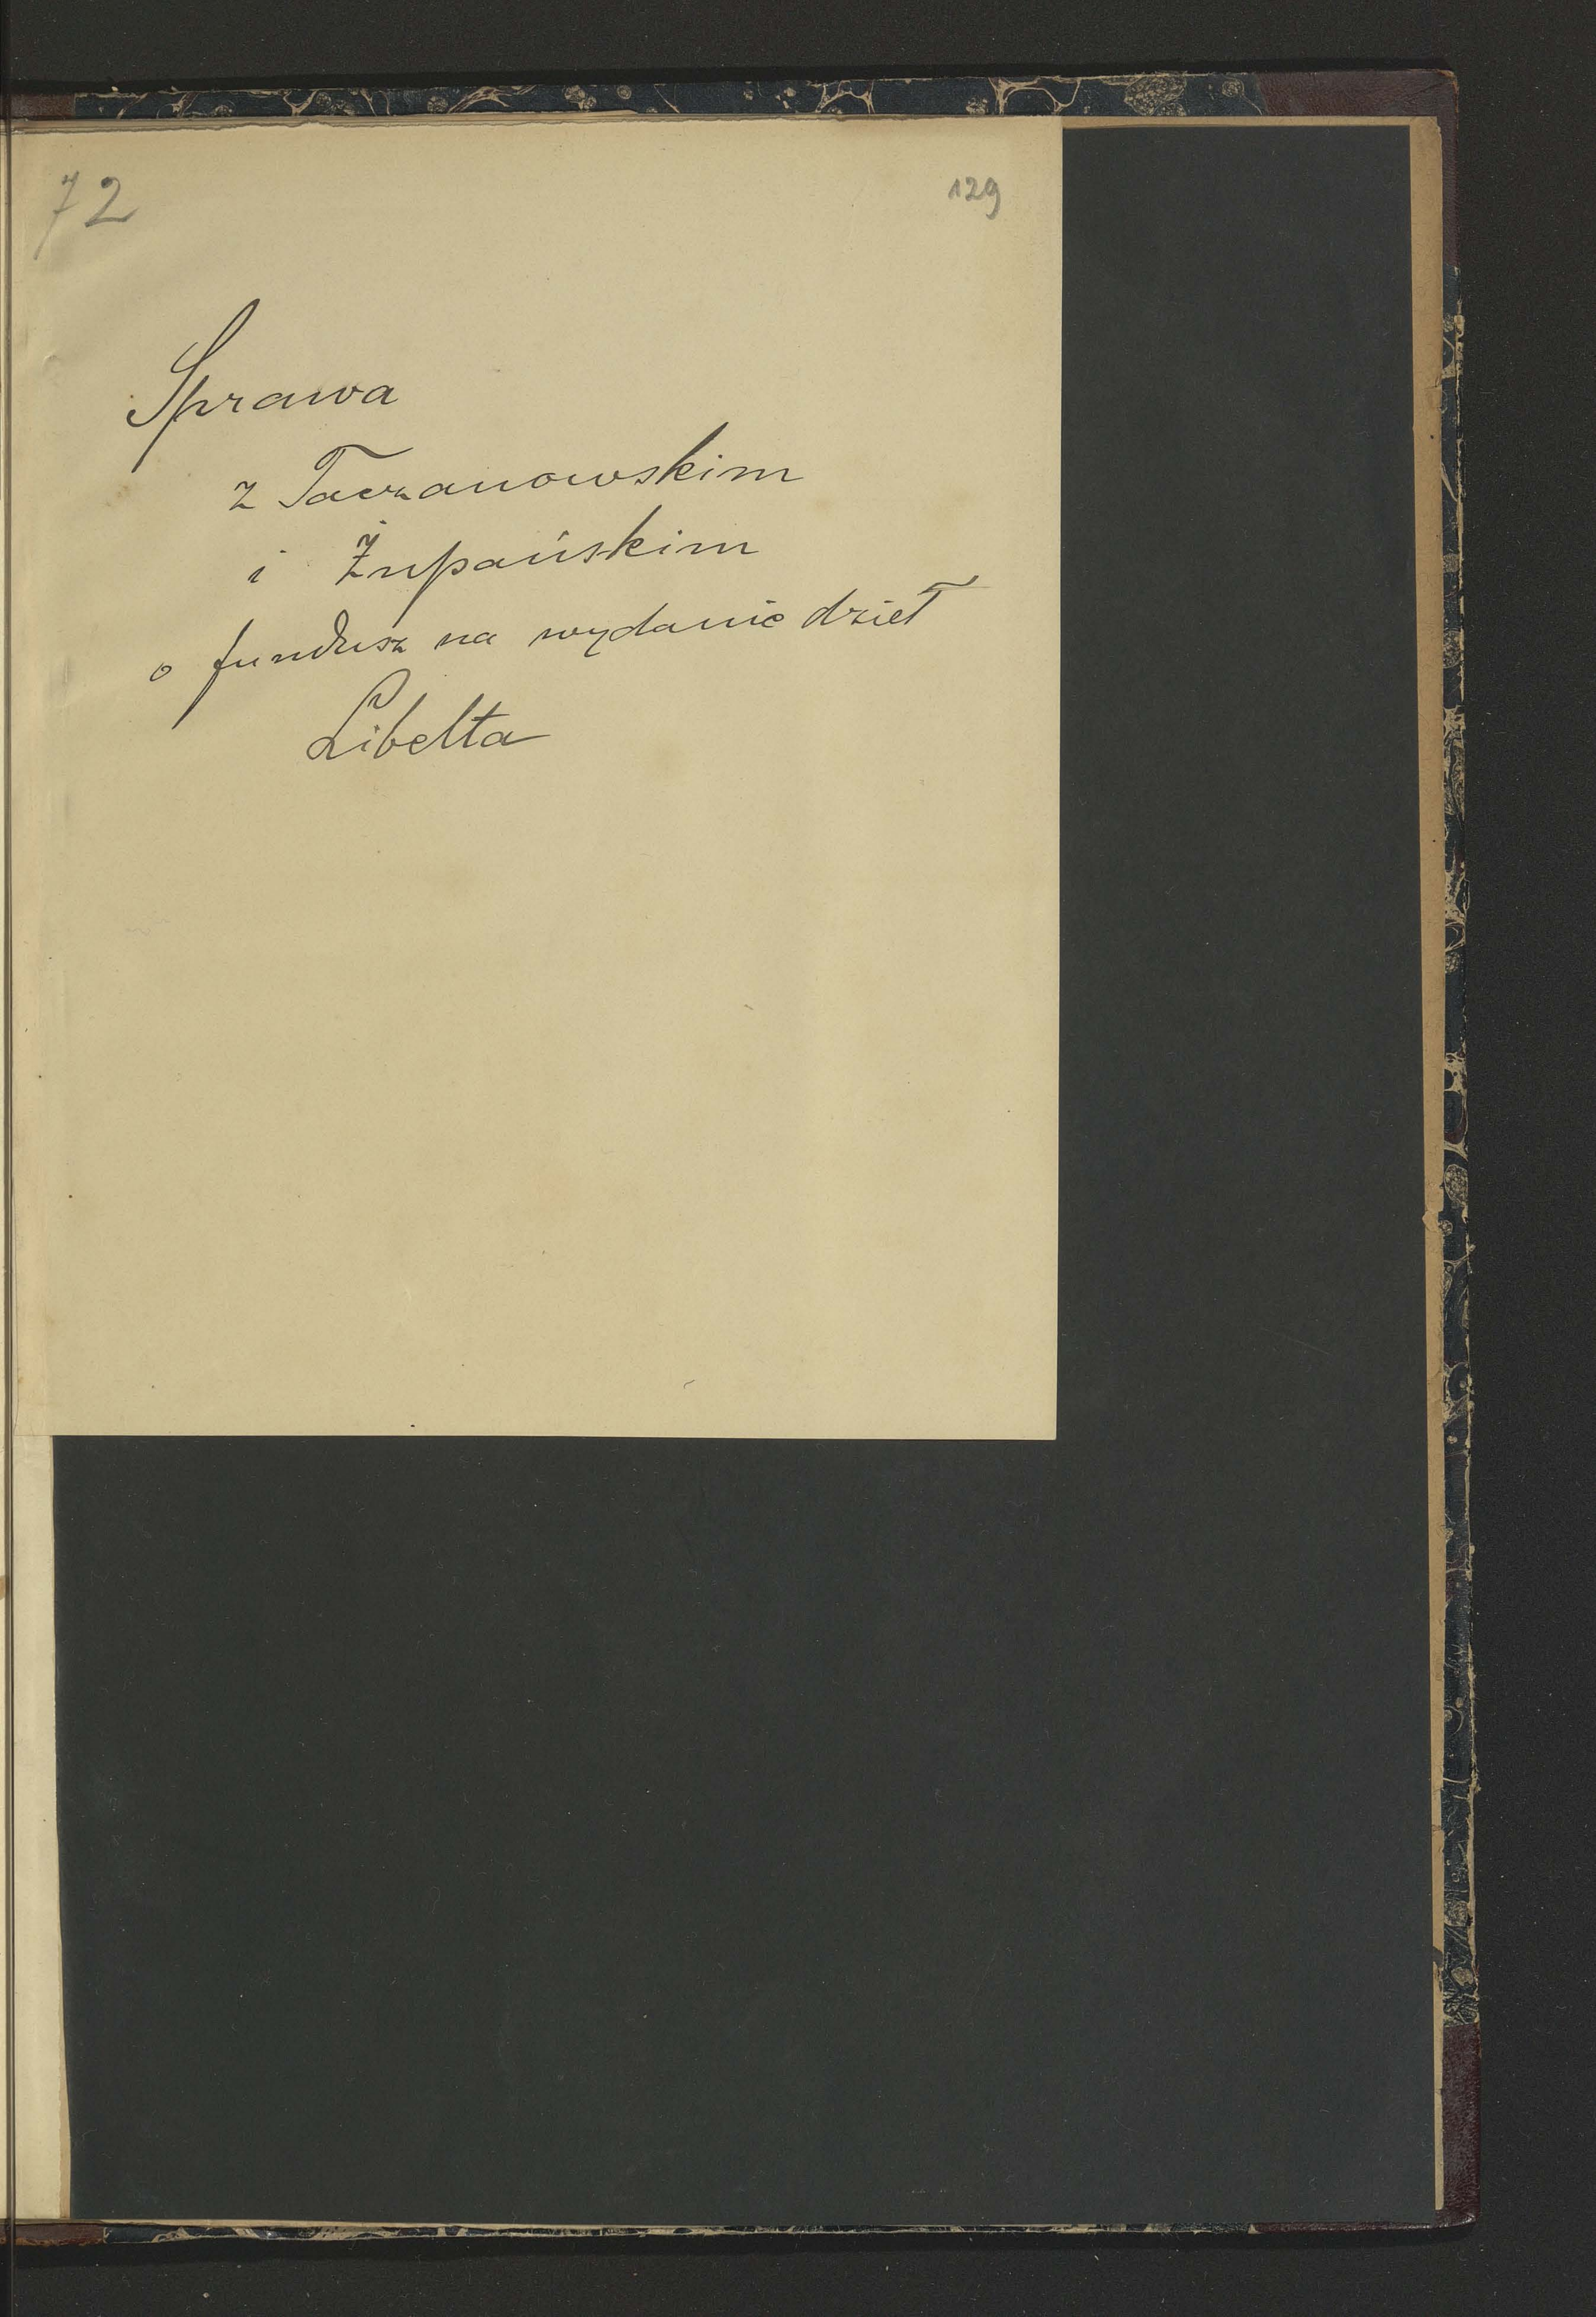 72
129
Sprawa
z Taczanowskim
i Żupańskim
o fundusz na wydanie dzieł
Libelta